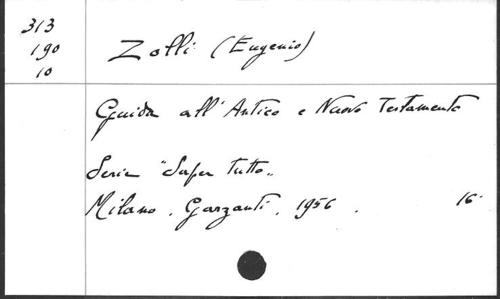 313
190
10
Zolli (Eugenio)
Guida all'Antico e Nuovo Testamento
Serie "Saper tutto"
Milano, Garzanti, 1956. 16°